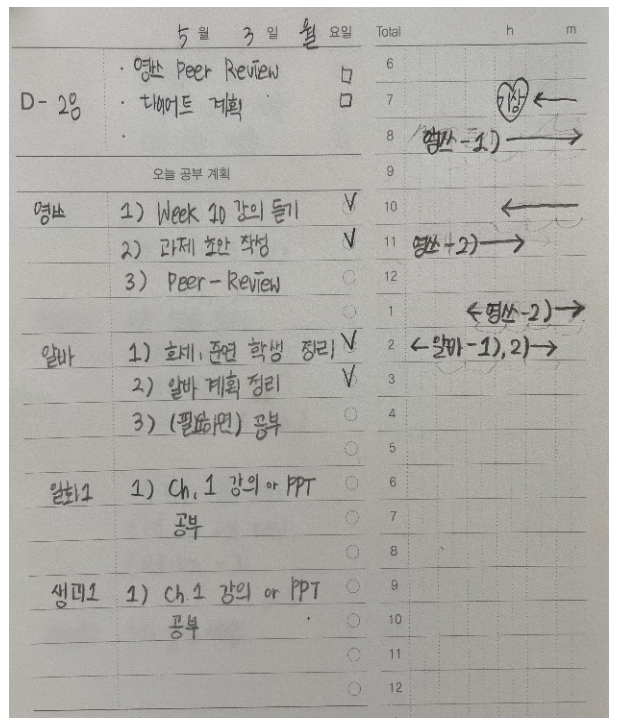 5월 3일 월요일
Total h m
D-28
· 영쓰 Peer Review □
· 다이어트 계획 □
·
오늘 공부 계획
영쓰 1) Week 10 강의 듣기 V
2) 과제 초안 작성 V
3) Peer-Review
알바 1) 호세, 준연 학생 정리 V
2) 알바 계획 정리 V
3) (필요하면) 공부
일화1 1) Ch. 1 강의 or PPT
공부
생리1 1) Ch. 1 강의 or PPT
공부
6
7 기상 ←
8 영쓰-1) →
9
10 ←
11 영쓰-2) →
12
1 ← 영쓰-2) →
2 ← 알바-1), 2) →
3
4
5
6
7
8
9
10
11
12